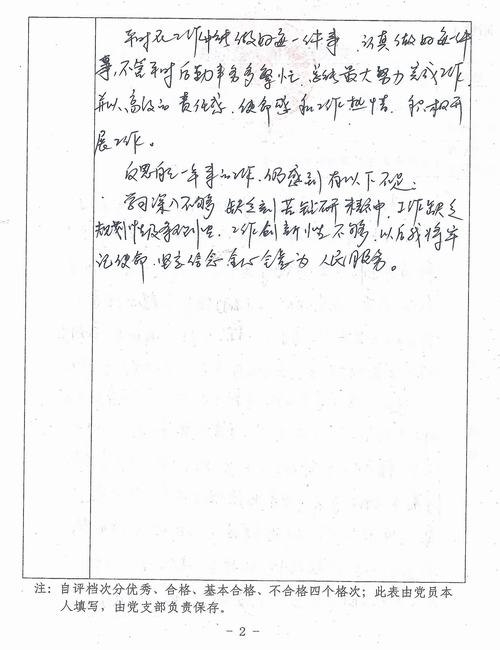 平时在工作中能做好每一件事 认真做好每一件
事,不管平时后勤事务多繁忙,总能最大努力完成工作,
并以高度的责任感、使命感和工作热情、积极开
展工作。
反思自己一年来的工作,仍感到有以下不足:
学习深入不够 缺乏刻苦钻研精神,工作缺乏
规划性,工作创新性不够,以后我将牢
记使命,坚定信念 全心全意为人民服务。
注:自评档次分优秀、合格、基本合格、不合格四个格次;此表由党员本
人填写,由党支部负责保存。
- 2 -